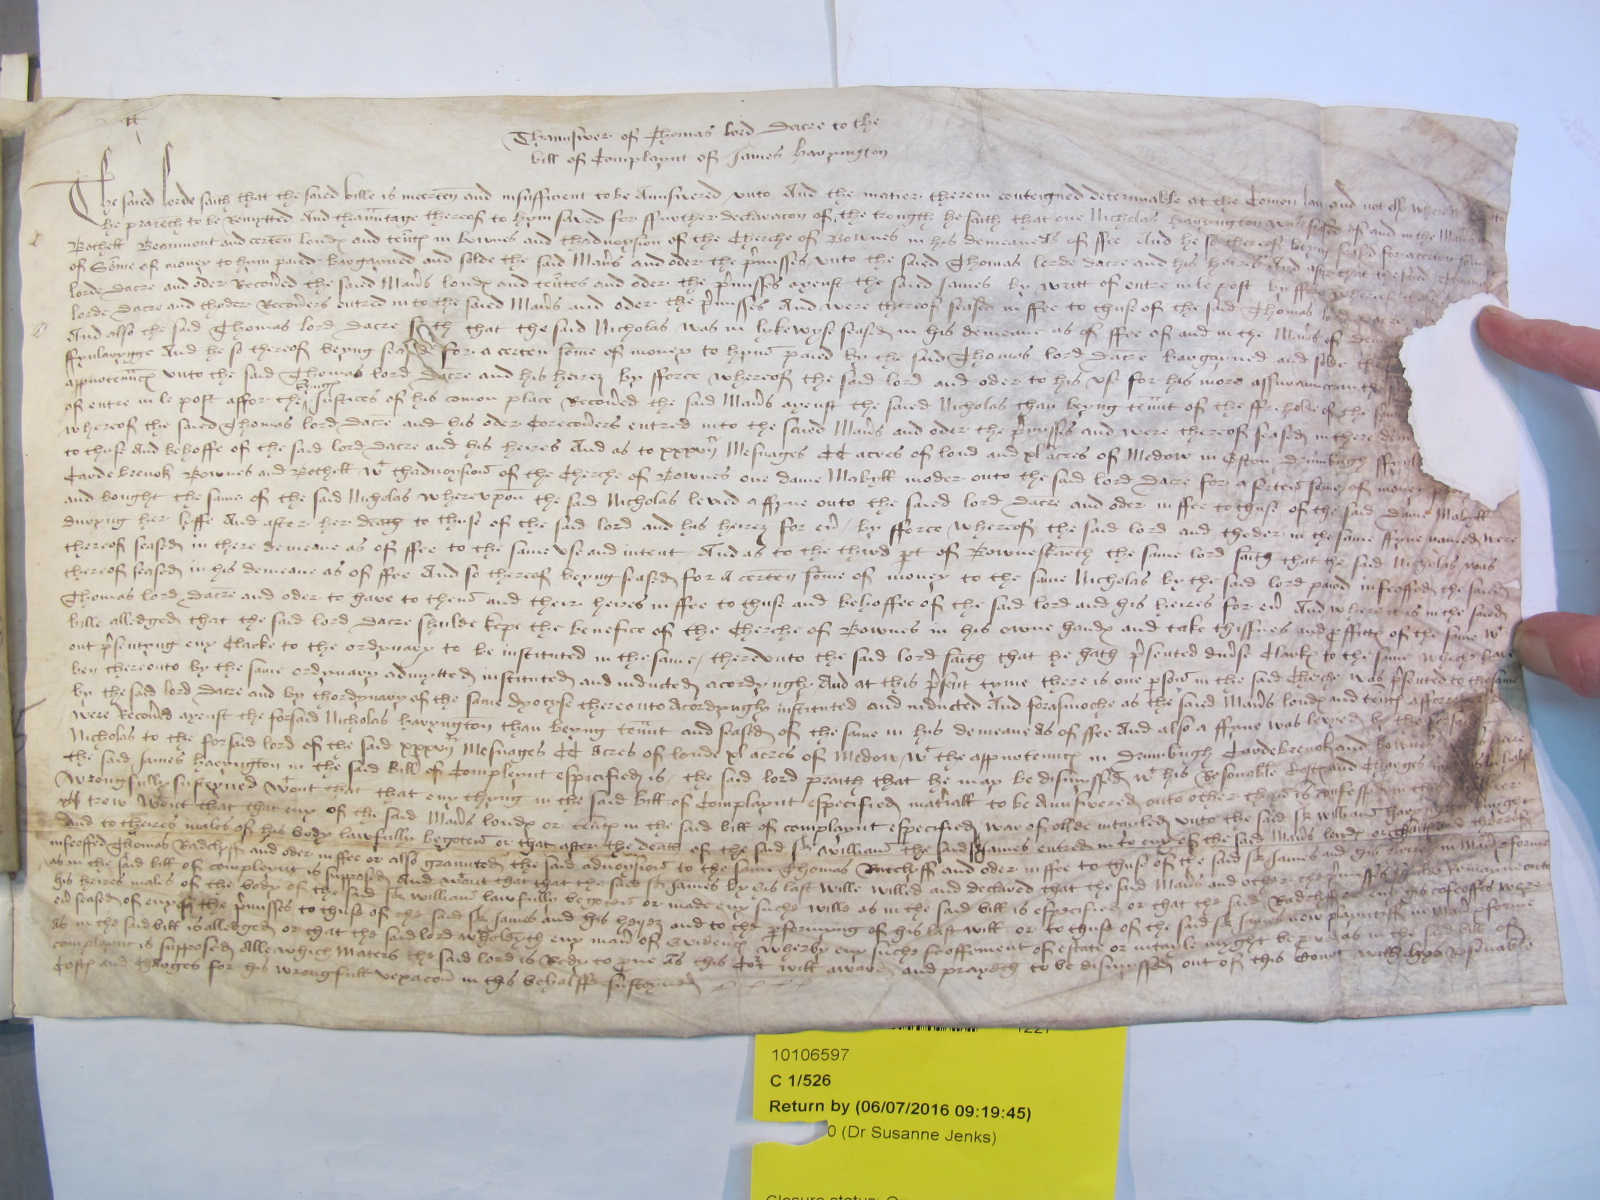 Thaunswer of Thomas lord Dacre to the
bill of Complaynt of James haryngton
The saied lorde saith that the saied bille is incerten and insufficient to be Aunswered vnto And the matier therein conteigned determinable at the Comen law and not
he prayeth to be Remytted And thauntage thereof to hym saved for ffurther declaracon of the trougth he saith that one Nicholas haryngton was seased of and in the
Bothell Beaumont and certen lond and tent in Bownes and thadvoyson of the Cherche of Bownes in his demeane As of ffee And he so thereof beyng seased for a certen
of Some of money to hym paied bargayned and solde the said Man's and oder the p'misses vnto the saied Thomas lorde dacre and his heires And after that the said
lorde Dacre and oder Recou'ed the saied Man's lond and tentes and oder the p'misses ayenst the saied James by writt of entre in le post by fforce whereof
lorde Dacre and thoder Recou'ers entred in to the saied Man's and oder the p'misses And were thereof seased in ffee to thuse of the said Thomas lord Dacre
And also the said Thomas lord Dacre saith that the said Nicholas was in lykewyse seased in his demeane as of ffee of and in the Man's of
And he so thereof beyng seased for a certen some of money to hym paied by the said Thomas lord Dacre bargayned and solde the
vnto the said Thomas lord Dacre and his heires by fforce whereof the said lord and oder to his vse for his more assuraunce
of entre in le post affor the kyngs Justices of his comon place Recou'ed the said Man's ayenst the saied Nicholas than beyng ten'nt of the ffreholde of the
whereof the saied Thomas lord Dacre and his oder Corecou'ers entred into the saied Man's and oder the p'misses and were thereof seased in there
to thuse And behoffe of the said lord dacre and his heires And as to xxxvij Mesuages CC acres of lond and xl acres of Medow in Eston Drumbugh
Cardebrenok Bownes and Bothell wt thadvoyson of the Cherche of Bownes one dame Mabyll moder vnto the said lord Dacre for a serten some of money
and bought the same of the said Nicholas wherevpon the said Nicholas levied a ffyne vnto the saied lord Dacre and oder in ffee to thuse of the said Dame Mabyll
duryng her lyffe And after her deth to thuse of the said lord and his heires for eu' by fforce whereof the said lord and thoder in the same ffyne named were
thereof seased in there demeane as of ffee to the same vse and intent And as to the third p't of Bowneskarth the same lord saith that the said Nicholas was
thereof seased in his demeane as of ffee And so thereof beyng seased for a certen some of money to the same Nicholas by the said lord paied infeoffed the saied
Thomas lord Dacre and oder to have to them and their heires in ffee to thuse and behoffe of the said lord and his heires for eu' And where it is in the saied
bille alledged that the said lord Dacre shulde kepe the benefice of the Cherche of Bownes in his owne hand and take thissues and p'ffitt of the same wt
out p'sentyng eny Clarke to the ordynary to be instituted in the same therevnto the said lord saith that he hath p'sented diu'se Clark to the same which have
ben thereonto by the same ordynary admytted instituted and inducted acordyngly And at this p'sent tyme there is one p'son in the said Cherche was p'sented to the same
by the said lord Dacre and by thordynary of the same dyocyse thereonto Acordyngly instituted And inducted And forasmoche as the saied Man's lond and tent
were Recou'ed ayenst the forsaid Nicholas haryngton than beyng ten'nt and seased of the same in his demeane As of ffee And also a ffyne was levied by the
Nicholas to the forsaid lord of the said xxxvij Mesuages CC Acres of londe xl acres of Medow wt the appurtenn'c in Drumbugh Cardebrenok and Bownes
the said James haryngton in the said bill of Complaynt especified is the said lord prayth that he may be dismyssed wt his Resonable Cost and Charges
wrongfully susteyned wt out that that eny thyng in the said bill of Complaynt especified mat'iall to be Aunswered onto other than is confessed
trew wt out that that eny of the said Man's lond or tent in the said bill of complaynt especified war of olde intayled vnto the said Sr William haryngton knyght
And to theires males of his body lawfully begoten or that after the deth of the said Sr William the said James entred in to eny of the said Man's lond
infeoffed Thomas Radclyff and oder in ffee or also graunted the said advoyson to the same Thomas Radclyff and oder in ffee to thuse of the said Sr James and his heires in man' & forme
as in the said bill of complaynt is supposed And wt out that that the said Sr James by his last wille willed and declared that the said Man's and other the p'misses shulde Remayne onto
his heires males of the body of the said Sr William lawfully begoten or made eny suche wille as in the said bill is especified or that the said Radclyff
seased of eny of the p'misses to thuse of the said Sr James and his heyez and to the p'formyng of his last will or to thuse of the said Sr James now playntiff in man' & forme
As in the said bill is alledged or that the said lord wtholdeth eny man' of Evidenc' wherby eny suche feoffement of estate or intayle myght be p'ved as in the said bill of
complaynt is supposed Alle which Maters the said lord is Redy to p've As this Co'rt will awarde and prayeth to be dismyssed out of this Court with hys Resonable
Cost and Charges for his wrongfull vexacon in this behalff susteyned
1227
10106597
C 1/526
Return by (06/07/2016 09:19:45)
0 (Dr Susanne Jenks)